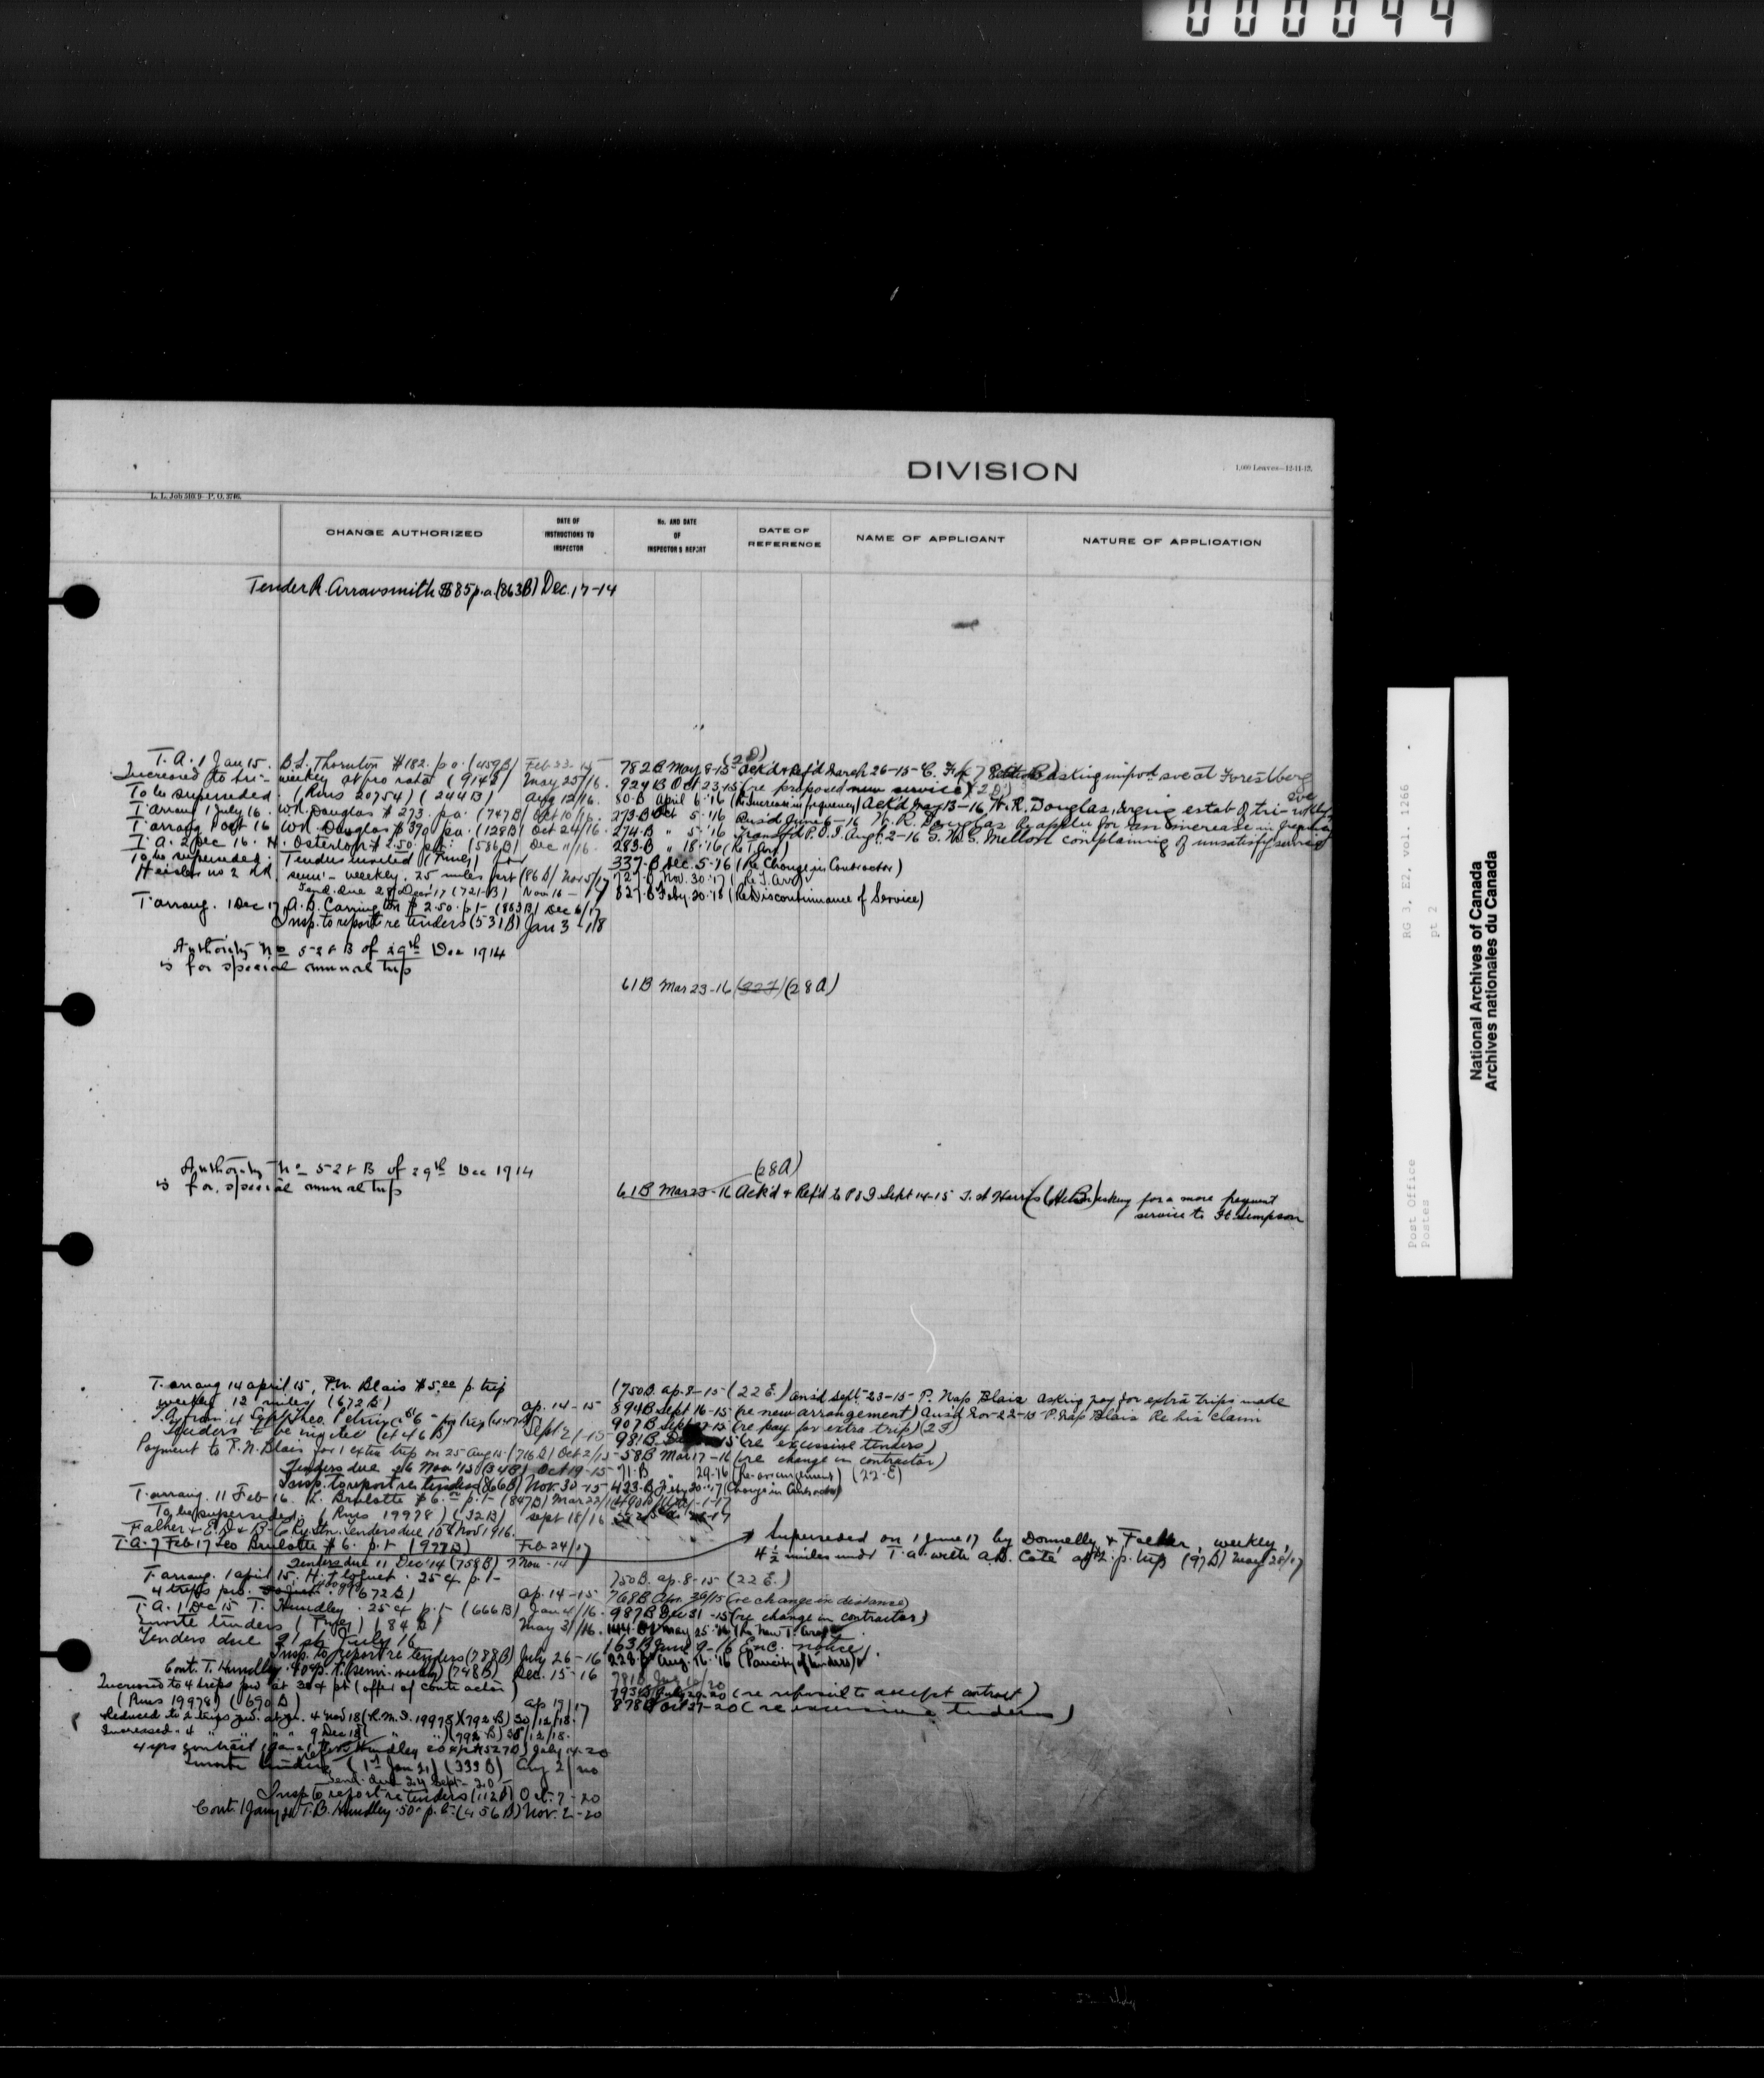 000044
DIVISION
1,000 Leaves—12-11-13.
L. L. Job 510 9— P. O. 2746.
CHANGE AUTHORIZED
DATE OF INSTRUCTIONS TO INSPECTOR
No. AND DATE OF INSPECTOR'S REPORT
DATE OF REFERENCE
NAME OF APPLICANT
NATURE OF APPLICATION
Tender R. Arrowsmith $85 p.a. (863B) Dec. 17-14
T. A. 1 Jan 15. B.L. Thornton $182. p.a. (459B) Feb 23. 15
782 B May 8-15 (2D) Ack'd & Ref'd March 26-15- C. asking impvd sve at Forestberg
Increased to tri-weekly at pro rata (914B) May 25/16.
924 B Oct 23-15 (re proposed new service) (2D)
To be superseded. (Rms 20754) (244B) Aug 12/16.
80-B April 6-'16 (Re Increase in frequency) Ack'd May 13-16 W.R. Douglas, urging estab of tri-wkly sve
T arrang 1 July 16. W.R. Douglas $273. p.a. (747B) Oct 10/16.
273-B Oct 5-'16 Ans'd June 6-16 W. R. Douglas for an increase in frequency
T arrang 1 Oct 16 W.R. Douglas $390 p.a. (128B) Oct 24/16.
274-B " 5-'16 Transf'd P.O.I. Aug. 2-16 Mellon complaining of unsatisfy service
T. A. 2 Dec 16. H. Osterlop $2.50. p.t. (586B) Dec 11/16.
283-B " 18-'16 (Re T. Arr)
To be superseded. Tenders invited
337-B Dec. 5-16 (Re Change in Contractor)
Heisler no 2 RR semi-weekly. 25 miles (86B) Nov 5/17
727-B Nov. 30-'17 (Re T. Arr)
Tend. due 28 Dec '17 (721-B) Nov 16-17
827-B Feby. 20-'18 (Re Discontinuance of Service)
T arrang. 1 Dec 17, A. B. Carrington $2.50. p.t- (863B) Dec 6/17
Insp. to report re tenders (531B) Jan 3-18
Authority No 528 B of 29th Dec 1914
is for special annual trip
61B Mar 23-16 (28A)
Authority No 528 B of 29th Dec 1914
is for special annual trip
(28A)
61B Mar 23-16 Ack'd & Ref'd to P O I Sept 14-15 asking for a more frequent
service to Ft. Simpson
T. arrang 14 april 15, P.N. Blais $5.00 p. trip
weekly 12 miles (672B) ap. 14-15
(750B. ap. 8-15- (22 E.) ans'd Sept-23-15- P. Nap Blais asking pay for extra trips made
894B Sept 16-15 (re new arrangement) Ans'd Nov-22-15 P. Nap Blais Re his claim
Tenders to be invited Sept 21-15
907B Sept (re pay for extra trip)
Payment to P.N. Blais for 1 extra trip on 25 Aug 15 (716B) Oct 2/15
981B 15 (re excessive tenders)
Tenders due 26 Nov '15 (34B) Oct 19-15
58B Mar 17-16 (re change in contractor)
Insp. to report re tenders (866B) Nov. 30-15
71-B " 29-16 (Re-arrangement) (22-E)
T. arrang. 11 Feb 16. L. Brulotte $6.00 p.t- (847B) Mar 22/16
423-B Feby 20-'17 (Change in Contractor)
To be superseded. (Rms 19978) (32B) Sept 18/16
Father & E.D. & B. C. Ry. Stn. Tenders due 10th Nov 1916.
T. A. 7 Feb 17 Leo Brulotte $6. p.t (977B) Feb 24/17
Superseded on 1 June 17 by Donnelly & Father, weekly,
4½ miles under T. a. with A.D. Cote at $2. p. trip (97B) May 28/17
Tenders due 11 Dec '14 (758B) 7 Nov-14
T arrang. 1 april 15. 25¢ p.t-
4 trips p.w. (672B) ap. 14-15
750B. ap. 8-15 (22 E.)
T. A. 1 Dec 15 T. Hundley. 25¢ p.t- (666B) Jan 4/16.
768B Apr. 30/15 (re change in distance)
987B Dec 31-15 (re change in contractor)
Invite tenders (84B) May 31/16.
144-B May 25-16 (Re New T. Arr)
Tenders due 21st July 16
163B June 9-16 Enc. notice
Insp. to report re tenders (788B) July 26-16
228-B Aug. 16-'16 (Paucity of tenders)
Cont. T. Hundley. 40¢ p.t. (semi-weekly) (748B) Dec. 15-16
Increased to 4 trips p.w. at 30¢ pt (offer of contractor)
(Rms 19978) (690B) ap 19/17
793B July 29-20 (re refusal to accept contract)
878B Oct 27-20 (re excessive tenders)
Reduced to 2 trips p.w. 4 Nov 18 (R.M.S. 19978) (792B) 30/12/18.
Increased " 4 " " " 9 Dec 18 ( " ") (792 B) 30/12/18.
4 yrs contract Hundley (527B) July 14-20
Invite tenders (1st Jan 21) (339B) Aug 2/20
Tend. due 24 Sept-20-
Insp to report re tenders (112B) Oct. 7-20
Cont. 1 Jany 21 T. B. Hundley. 50¢ p.t. (456B) Nov. 2-20
RG 3, E2, vol. 1266
pt 2
Post Office
Postes
National Archives of Canada
Archives nationales du Canada